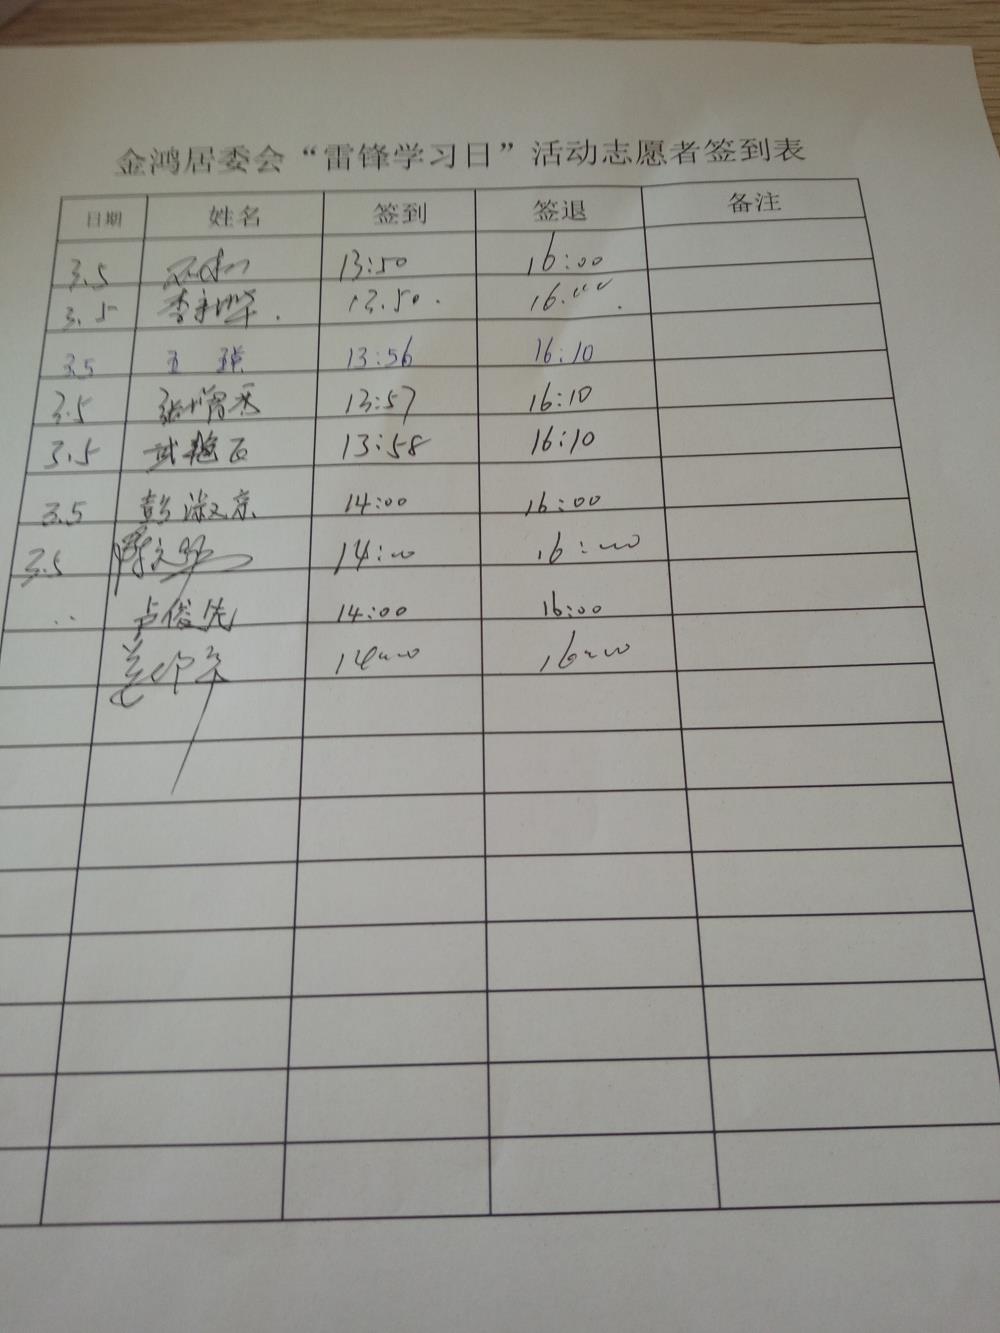 金鸿居委会“雷锋学习日”活动志愿者签到表
日期 姓名 签到 签退 备注
3.5 13:50 16:00
3.5 李 13.50. 16.00.
3.5 王 13:56 16:10
3.5 张增秀 13:57 16:10
3.5 武艳 13:58 16:10
3.5 彭淑京 14:00 16:00
3.5 14:00 16:00
.. 卢俊先 14:00 16:00
14:00 16:00